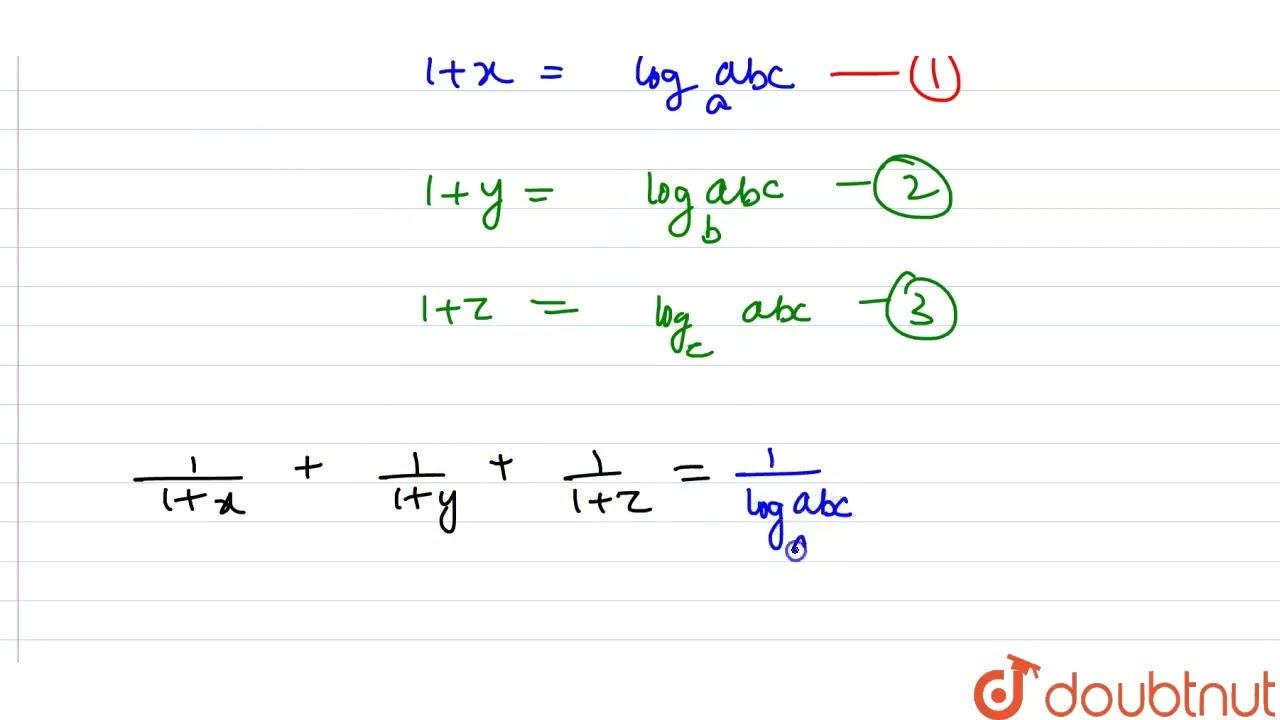 1+x = log_a abc — 1
1+y = log_b abc — 2
1+z = log_c abc — 3
1/(1+x) + 1/(1+y) + 1/(1+z) = 1/(log_a abc)
doubtnut